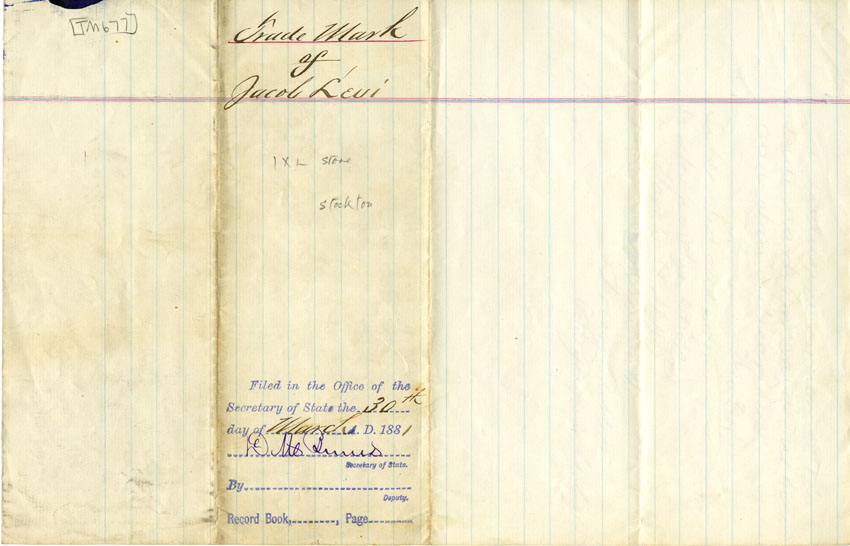 [TM677]
Trade Mark
of
Jacob Levi
IXL Store
Stockton
Filed in the Office of the
Secretary of State the 30th
day of March A. D. 1881
Secretary of State.
By
Deputy.
Record Book, , Page